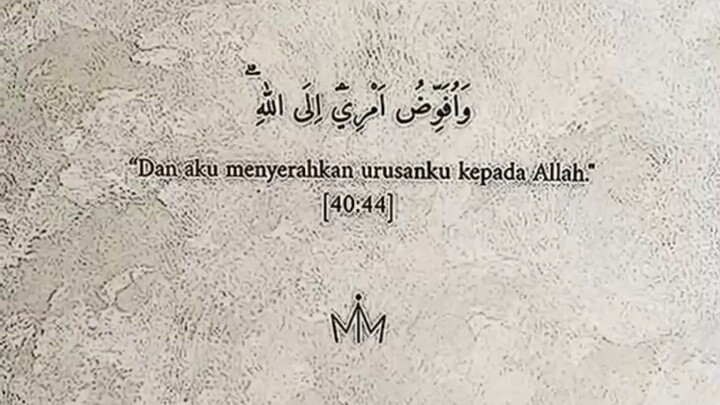 وَاُفَوِّضُ اَمْرِيْٓ اِلَى اللّٰهِ ۗ
“Dan aku menyerahkan urusanku kepada Allah."
[40:44]
MIM